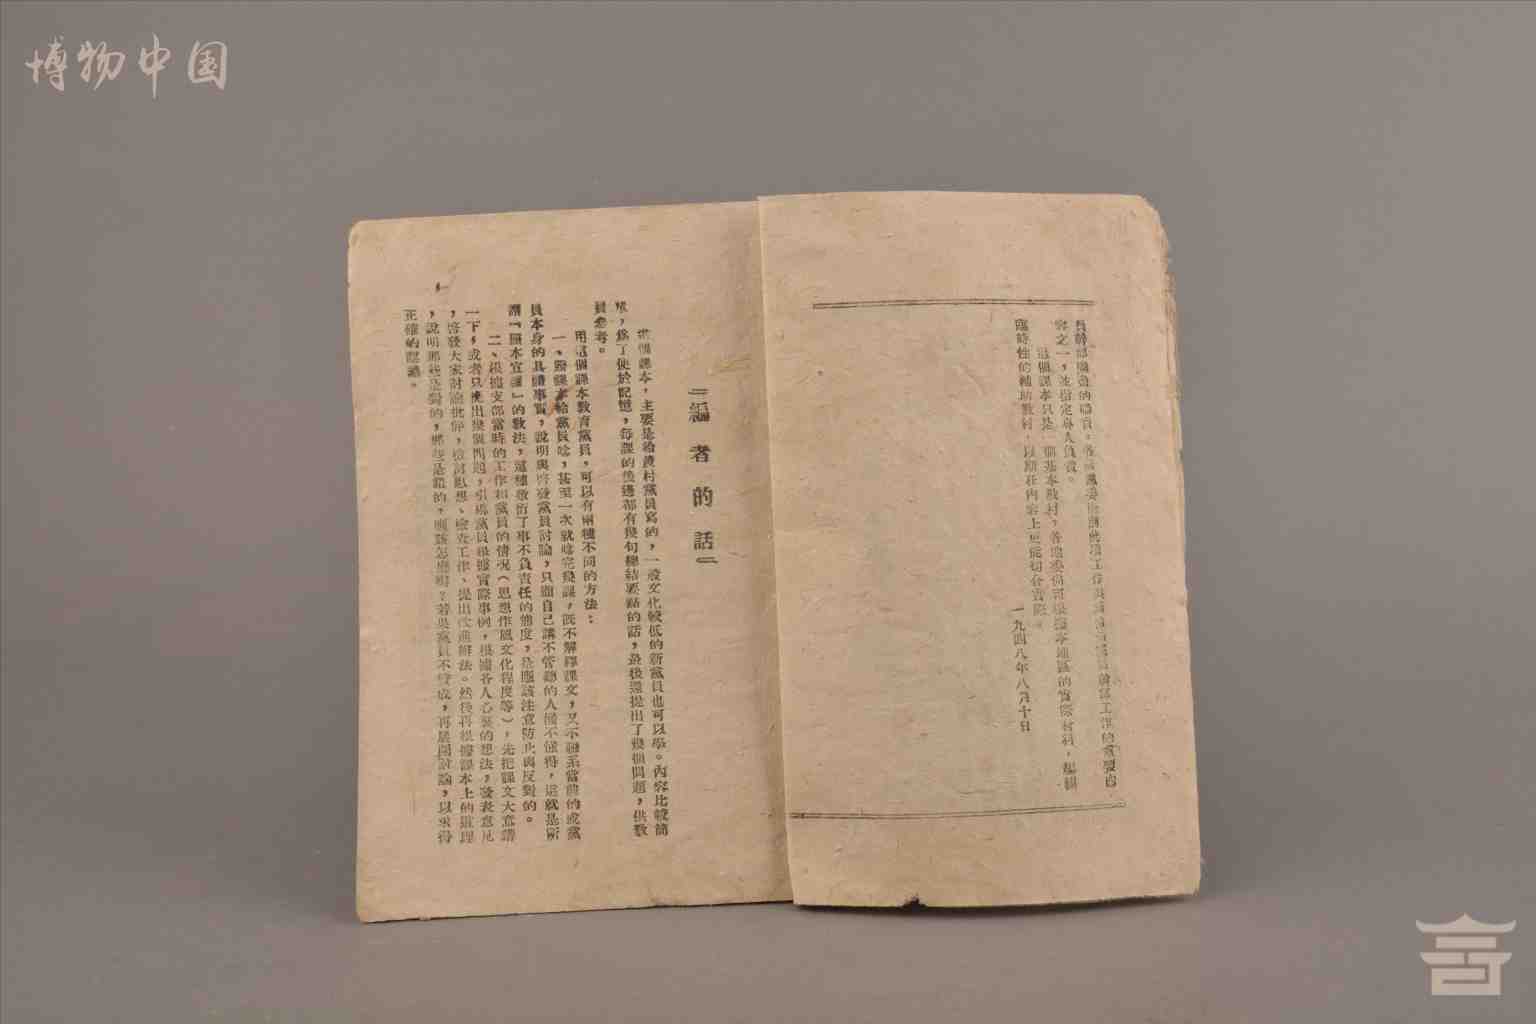 博物中国
員幹部閱讀的
容之一，並指定專人負責。
這個課本只是一個基本教材，各地委倘可根據本地區的實際材料，編輯
臨時性的補助教材，以期在內容上更能切合實際。
一九四八年八月十日
『編者的話』
這個課本，主要是給農村黨員寫的，一般文化較低的新黨員也可以學。內容比較簡
單，為了便於記憶，每課的後邊都有幾句總結要點的話，最後還提出了幾個問題，供教
員參考。
用這個課本教育黨員，可以有兩種不同的方法：
一、將課本給黨員唸，甚至一次就唸完幾課，既不解釋課文，又不聯系當前的或黨
員本身的具體事實，說明與啓發黨員討論，只顧自己講不管聽的人懂不懂得，這就是所
謂『照本宣讀』的教法，這種敷衍了事不負責任的態度，是應該注意防止與反對的。
二、根據支部當時的工作和黨員的情況（思想作風文化程度等），先把課文大意講
一下，或者只提出幾個問題，引導黨員根據實際事例，根據各人心裏的想法，發表意見
，啓發大家討論批評，檢討思想、檢查工作、提出改進辦法。然後再根據課本上的道理
，說明那些是對的，那些是錯的，應該怎麼辦？若果黨員不贊成，再展開討論，以求得
正確的認識。